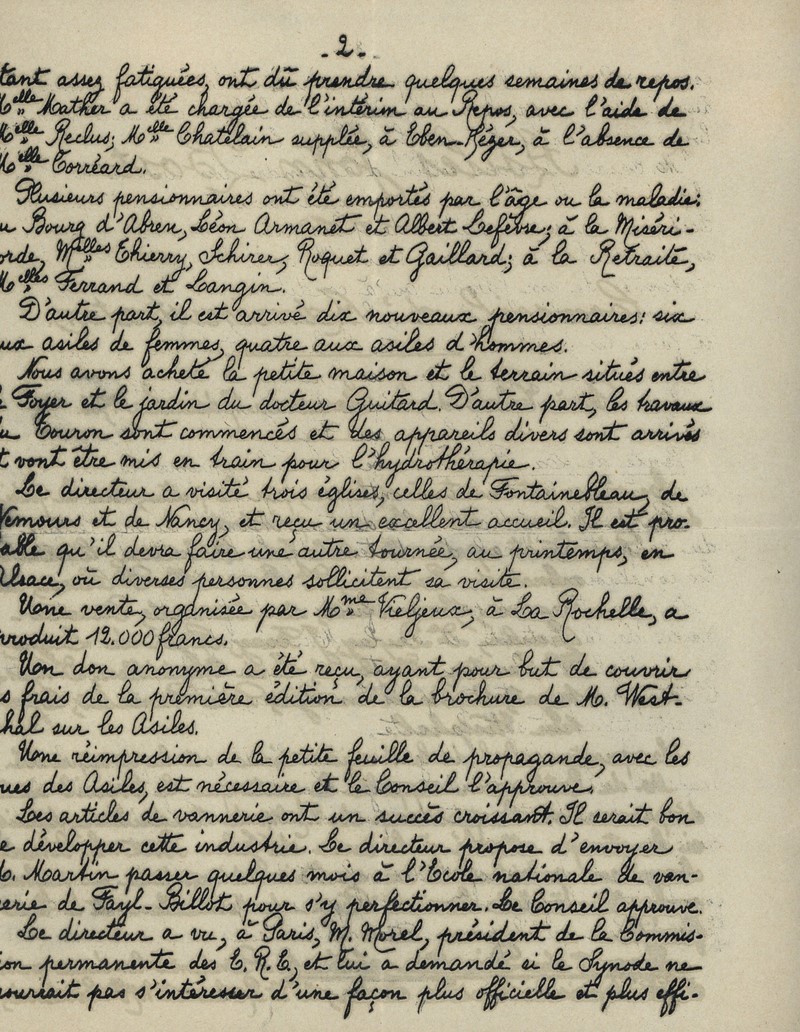 - 2 -
tant assez fatiguées, ont dû prendre quelques semaines de repos.
Melle Mather a été chargée de l'intérim au Repos, avec l'aide de
Melle Reclus; Melle Chatelain supplée, à Eben-Hézer, à l'absence de
Melle Corréard.
Plusieurs pensionnaires ont été emportés par l'âge ou la maladie:
u Bourg d'Abren, Léon Armanet et Albert Lefèvre; à la Miséri-
orde, Mlles Thierry, Schirer, Roquet et Gaillard; à la Retraite,
Melles Ferrand et Langin.
D'autre part, il est arrivé dix nouveaux pensionnaires: six
ux asiles de femmes, quatre aux asiles d'hommes.
Nous avons acheté la petite maison et le terrain situés entre
e Foyer et le jardin du docteur Guitard. D'autre part, les travaux
u Couron sont commencés et des appareils divers sont arrivés
t vont être mis en train pour l'hydrothérapie.
Le directeur a visité trois églises, celles de Fontainebleau, de
Nemours et de Nancy, et reçu un excellent accueil. Il est pro-
able qu'il devra faire une autre tournée, au printemps, en
Alsace, où diverses personnes sollicitent sa visite.
Une vente, organisée par Mme Vieljeux, à La Rochelle, a
produit 12.000 francs.
Un don anonyme a été reçu, ayant pour but de couvrir
s frais de la première édition de la brochure de M. West-
hal sur les Asiles.
Une réimpression de la petite feuille de propagande, avec les
ues des Asiles, est nécessaire et le Conseil l'approuve.
Les articles de vannerie ont un succès croissant. Il serait bon
e développer cette industrie. Le directeur propose d'envoyer
M. Martin passer quelques mois à l'Ecole nationale de van-
erie de Fayl-Billot pour s'y perfectionner. Le Conseil approuve.
Le directeur a vu, à Paris, M. Morel, président de la Commis-
ion permanente des E. R. E, et lui a demandé si le Synode ne
pourrait pas s'intéresser d'une façon plus officielle et plus effi-